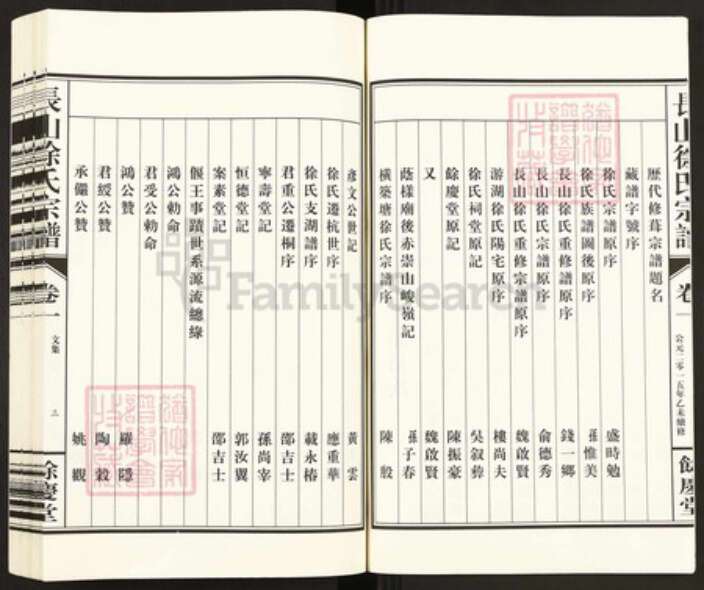 長山徐氏宗譜
卷一
公元二零一五年乙未續修
餘慶堂
歷代修葺宗譜題名
藏譜字號序
徐氏宗譜原序 盛時勉
徐氏族譜圖後原序 孫惟美
長山徐氏重修宗譜原序 錢一鄉
長山徐氏宗譜原序 俞德秀
長山徐氏重修宗譜原序 魏啟賢
游湖徐氏陽宅原序 樓尚夫
徐氏祠堂原記 吳叙彝
餘慶堂原記 陳振豪
又 魏啟賢
蔭樣廟後赤崇山峻嶺記 孫子春
橫築塘徐氏宗譜序 陳殷
彥文公世記 黃雲
徐氏遷杭世序 應重華
徐氏支湖譜序 戴永椿
君重公遷桐序 邵吉士
寧壽堂記 孫尚宰
恒德堂記 郭汝翼
案素堂記 邵吉士
偃王事蹟世系源流總錄
鴻公勅命
君受公勅命
鴻公贊 羅隱
君綬公贊 陶穀
承儼公贊 姚觀
長山徐氏宗譜
卷一
文集
三
餘慶堂
FamilySearch